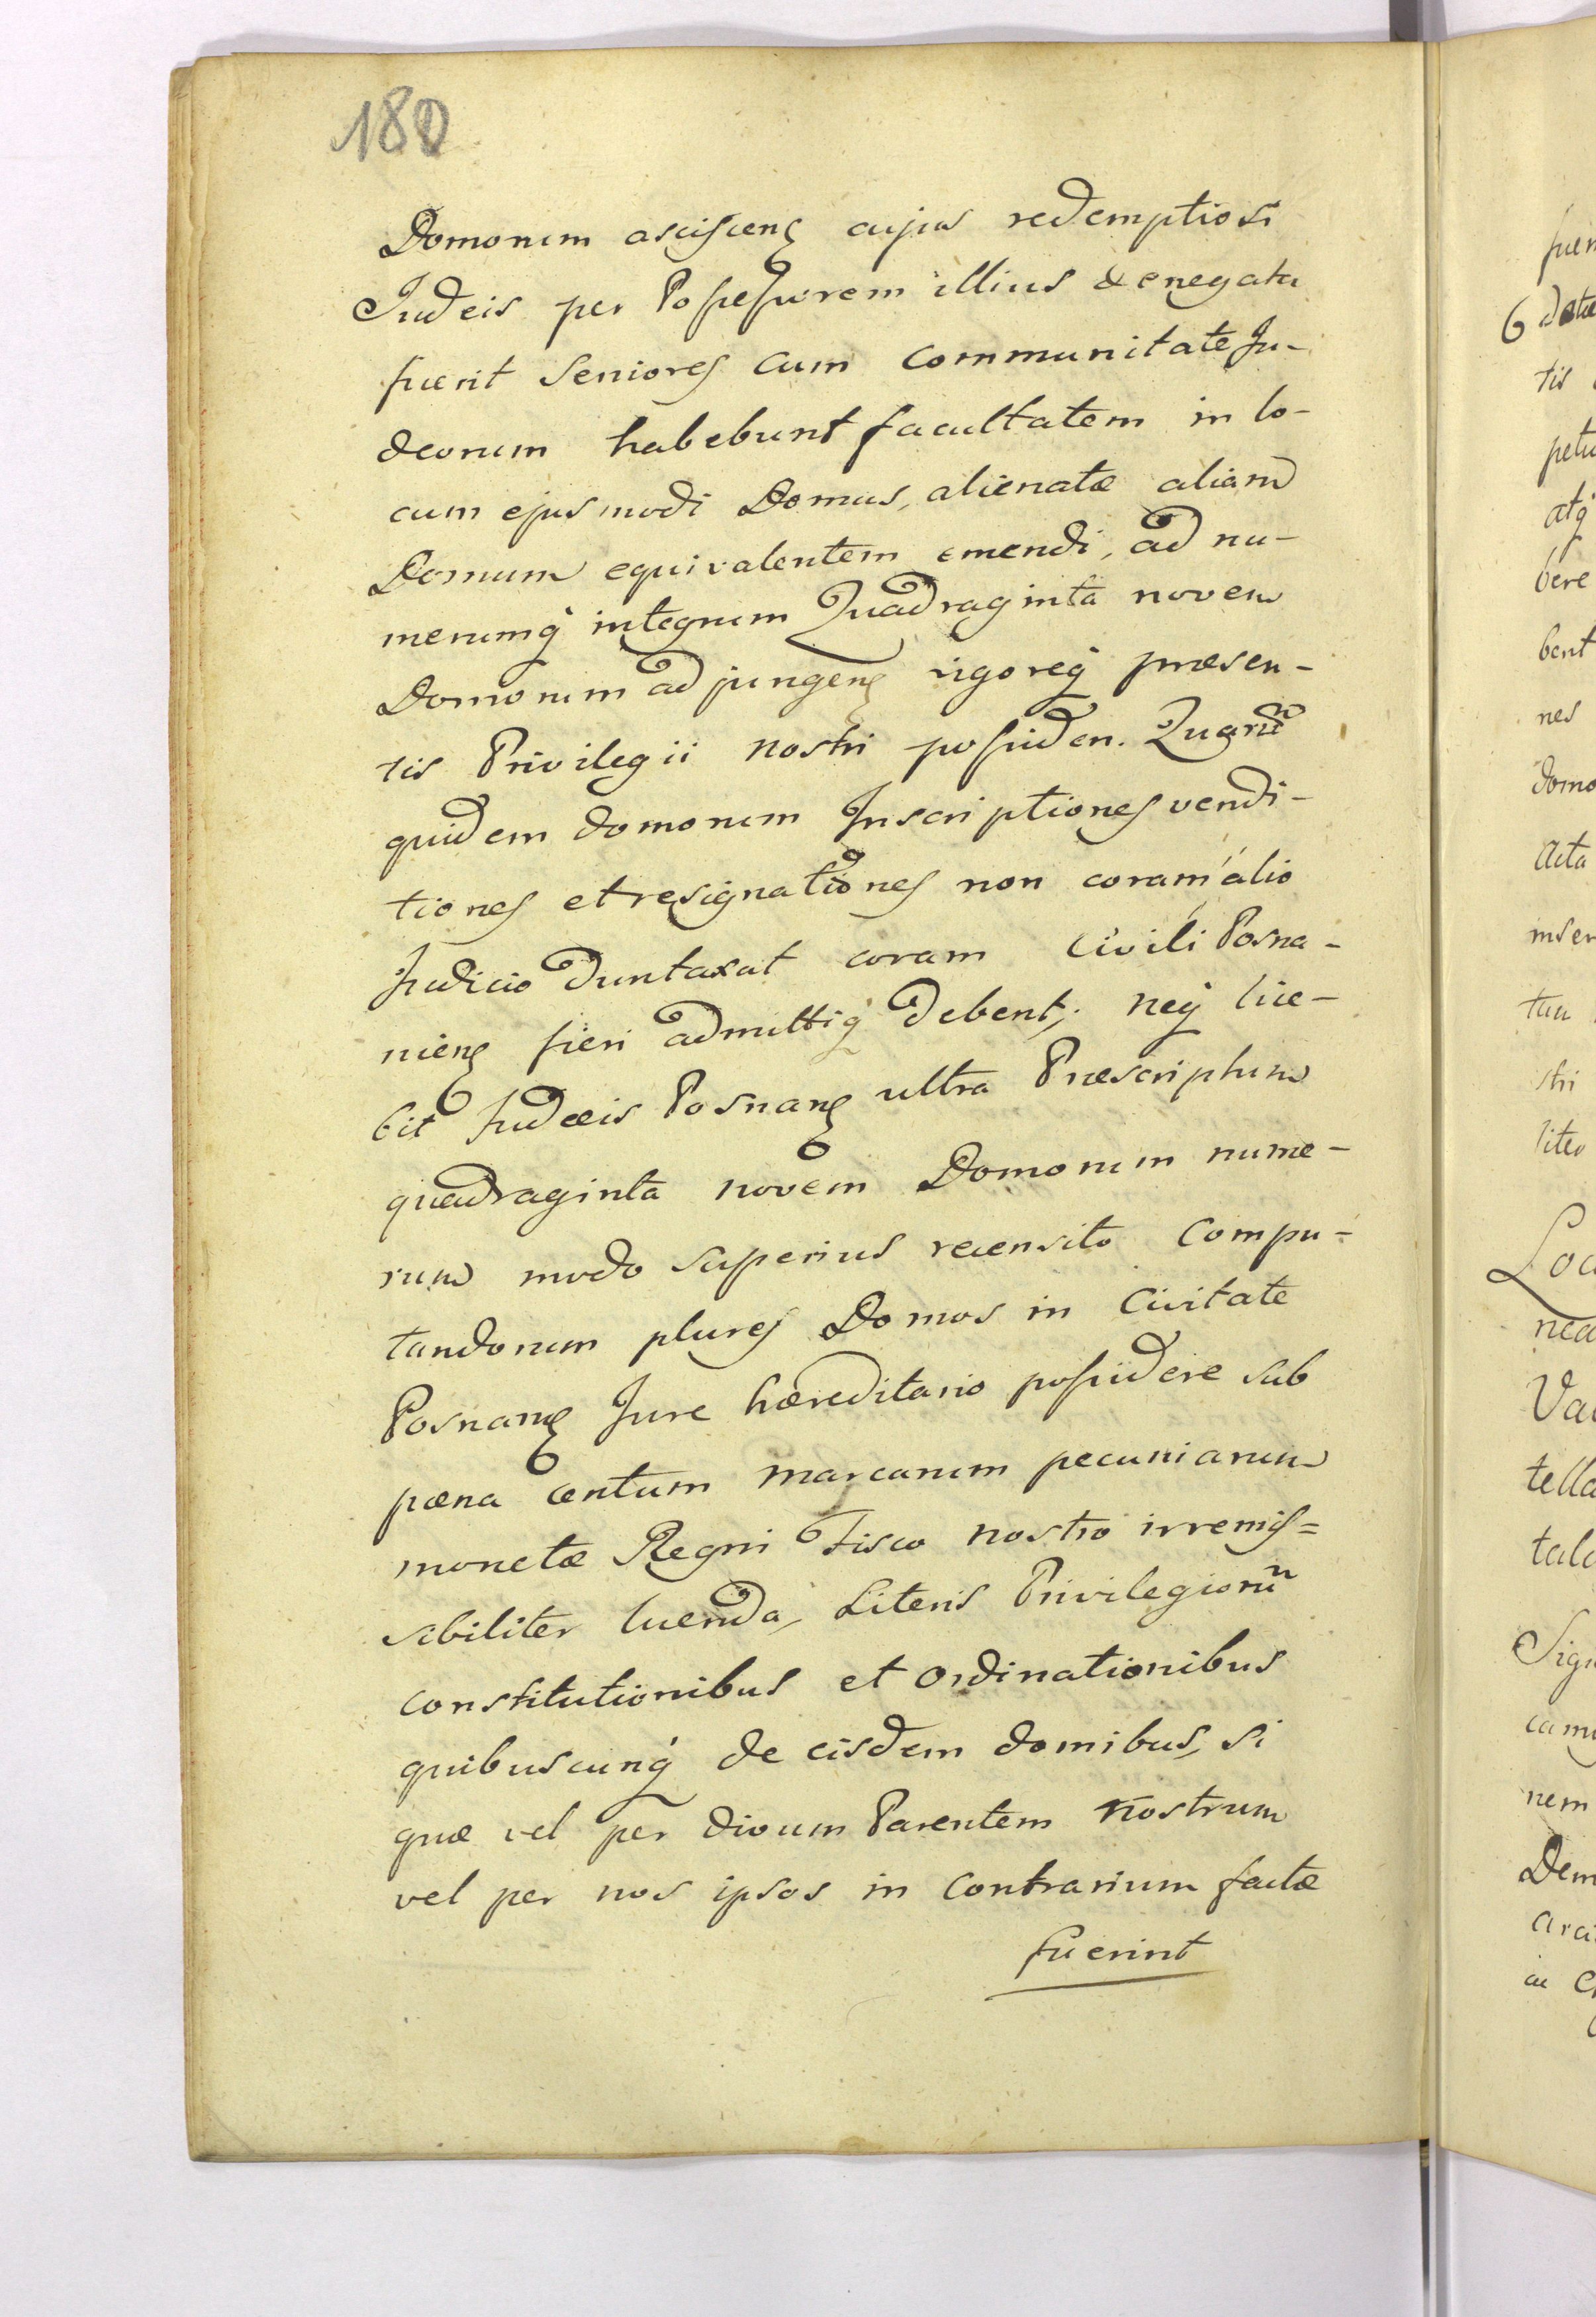 180
Domorum asciscenꝫ cujus redemptio si
Judeis per Possessorem illius denegata
fuerit Seniores cum communitate Ju-
deorum habebunt facultatem in lo-
cum ejusmodi Domus, alienatæ aliam
Domum equivalentem emendi, ad nu-
merumq́ integrum Quadraginta novem
Domorum adjungenꝫ vigoreq́ præsen-
tis Privilegii nostri possiden. Quarum̃
quidem domorum Inscriptiones vendi-
tiones et resignationes non coram alio
Judicio duntaxat coram Civili Posna-
nienꝫ fieri admittiq́ debent; neq́ lice-
bit Judæis Posnanꝫ ultra Præscriptum
quadraginta novem Domorum nume-
rum modo superius recensito compu-
tandorum plures Domos in Civitate
Posnanꝫ Jure hæreditario possidere sub
pæna centum marcarum pecuniarum
monetæ Regni Fisco nostro irremis=
sibiliter luenda, Literis Privilegiorum̃
constitutionibus et Ordinationibus
quibuscunq́ de eisdem domibus, si
quæ vel per divum Parentem nostrum
vel per nos ipsos in contrarium factæ
fuerint